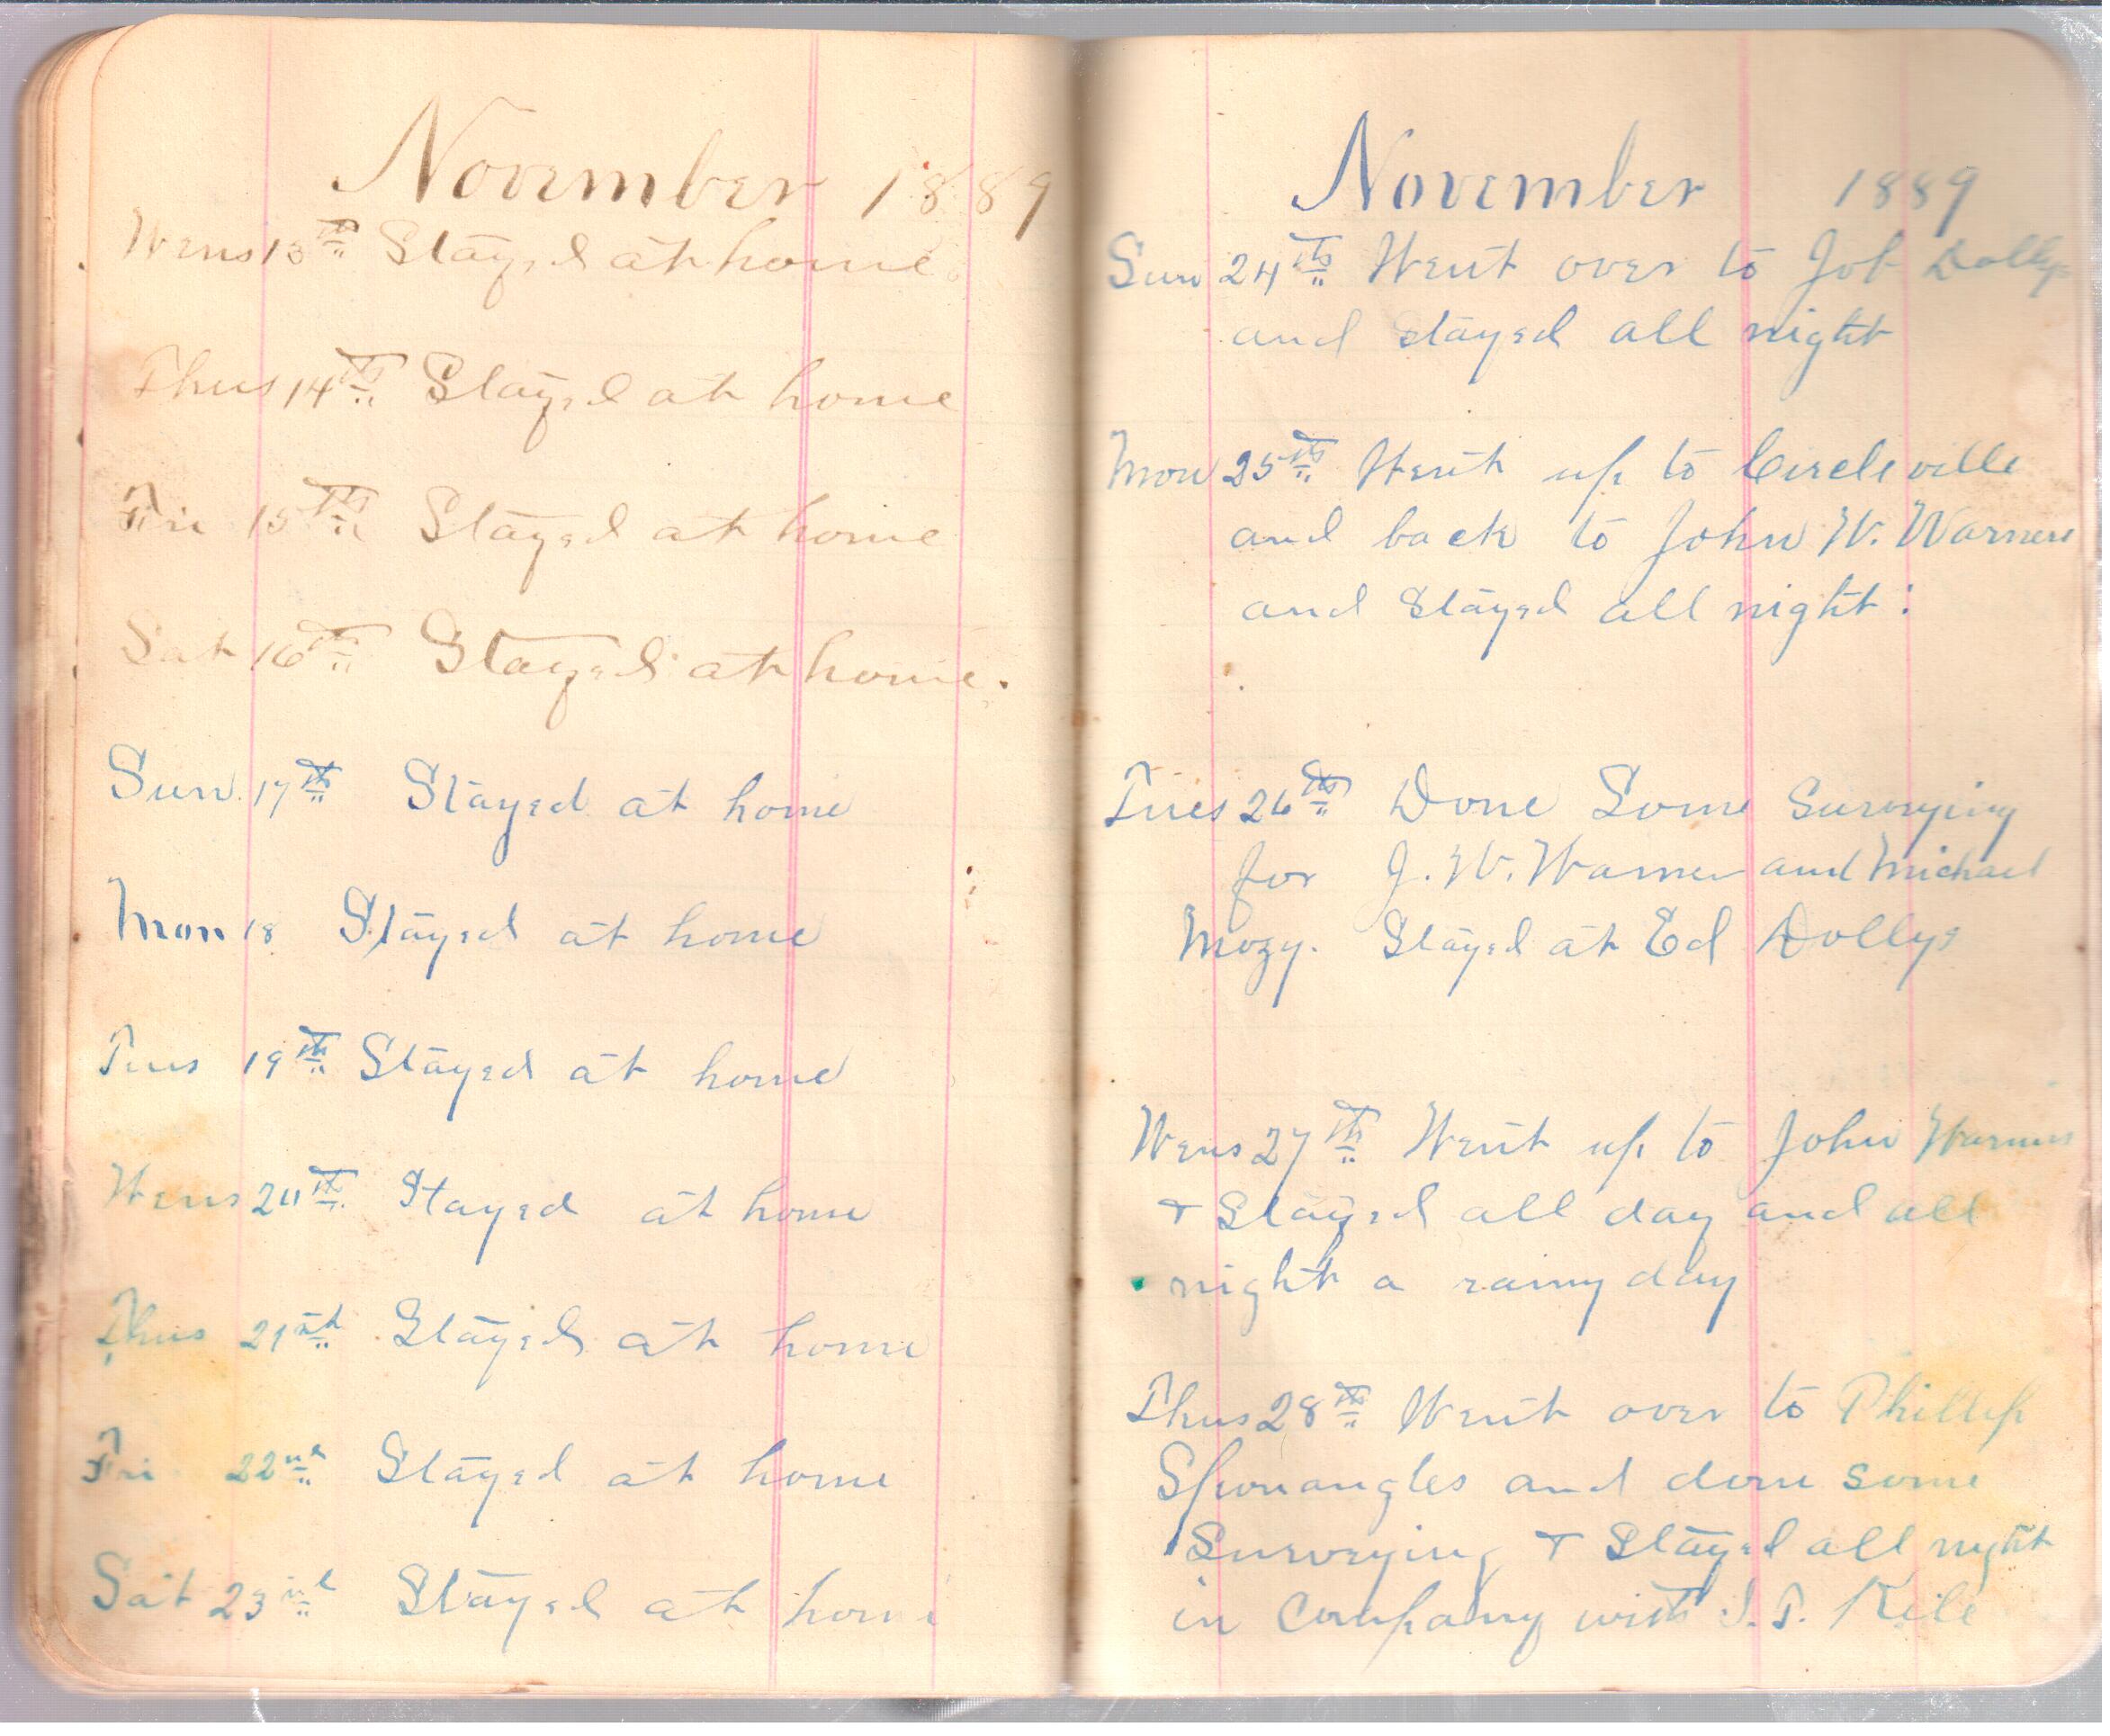 November 1889
Wens 13th Stayed at home
Thus 14th Stayed at home
Fri 15th Stayed at home
Sat 16th Stayed at home.
Sun 17th Stayed at home
Mon 18 Stayed at home
Tues 19th Stayed at home
Wens 20th Stayed at home
Thus 21st Stayed at home
Fri 22nd Stayed at home
Sat 23rd Stayed at home
November 1889
Sun 24th Went over to Job Dollys
and Stayed all night
Mon 25th Went up to Circleville
and back to John W. Warners
and Stayed all night:
Tues 26th Done Some Surveying
for J. W. Warner and Michael
Mozy. Stayed at Ed Dollys
Wens 27th Went up to John Warners
+ Stayed all day and all
night a rainy day
Thus 28th Went over to Phillip
Sponangles and done some
Surveying + Stayed all night
in Company with I. T. Kile